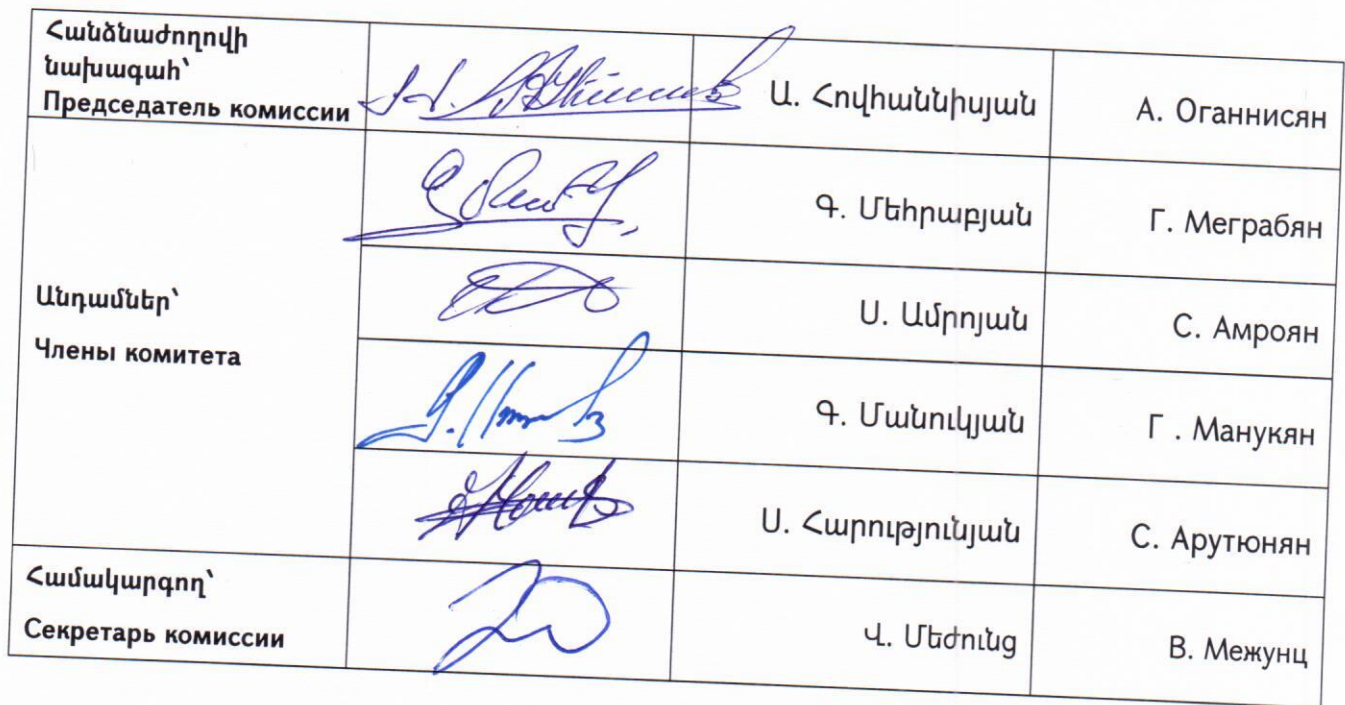 Հանձնաժողովի
նախագահ՝
Председатель комиссии
Ա. Հովհաննիսյան
А. Оганнисян
Գ. Մեհրաբյան
Г. Меграбян
Անդամներ՝
Члены комитета
Ս. Ամրոյան
С. Амроян
Գ. Մանուկյան
Г . Манукян
Ս. Հարությունյան
С. Арутюнян
Համակարգող՝
Секретарь комиссии
Վ. Մեժունց
В. Межунц